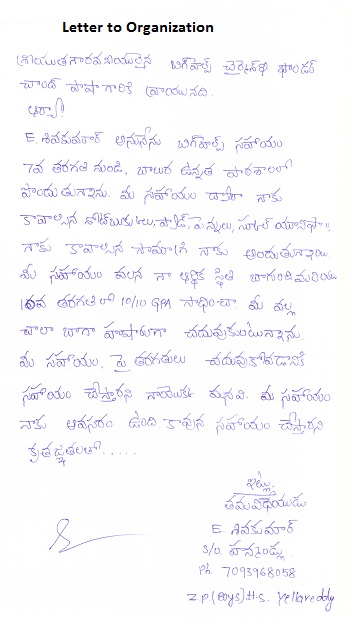 Letter to Organization
శ్రీయుత గౌరవనీయులైన బిగ్‌హెల్ప్ చైర్మెన్ & ఫౌండర్
చాంద్ పాషా గారికి వ్రాయునది.
ఆర్యా!
E. శివకుమార్ అనునేను బిగ్‌హెల్ప్ సహాయం
7వ తరగతి నుండి, బాలుర ఉన్నత పాఠశాలలో
పొందుతున్నాను. మీ సహాయం ద్వారా నాకు
కావాల్సిన నోట్‌బుక్కులు, ప్యాడ్, పెన్నులు, స్కూల్ యూనిఫాం,
నాకు కావాల్సిన సామాగ్రి నాకు అందుతున్నాయి.
మీ సహాయం వలన నా ఆర్థిక స్థితి బాగుంది మరియు
10వ తరగతి లో 10/10 GPA సాధించా మీ వల్ల
చాలా బాగా హుషారుగా చదువుకుంటున్నాను.
మీ సహాయం, పై తరగతులు చదువుకోవడానికి
సహాయం చేస్తారని నాయొక్క మనవి. మీ సహాయం
నాకు అవసరం ఉంది కావున సహాయం చేస్తారని
కృతజ్ఞతలతో......
ఇట్లు
తమ విధేయుడు
E. శివకుమార్
S/o. పోచగండ్లు
Ph. 7093968058
Z.P(Boys)H.S. Yellareddy